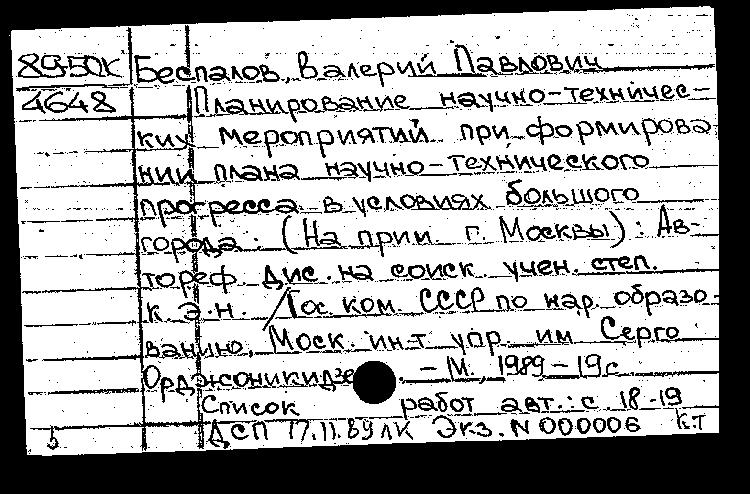 89-50к Беспалов, Валерий Павлович
4648 Планирование научно-техничес-
ких мероприятий при формирова
нии плана научно-технического
прогресса в условиях большого
города: (На прим. г. Москвы): Ав-
тореф. дис. на соиск. учен. степ.
к.э.н. / Гос. ком. СССР по нар. образо-
ванию, Моск. ин-т упр. им Серго
Орджоникидзе. - М., 1989 - 19с
Список работ авт.: с. 18-19
5 ДСП 17.11.89 ЛК Экз. N 000006 К.Т